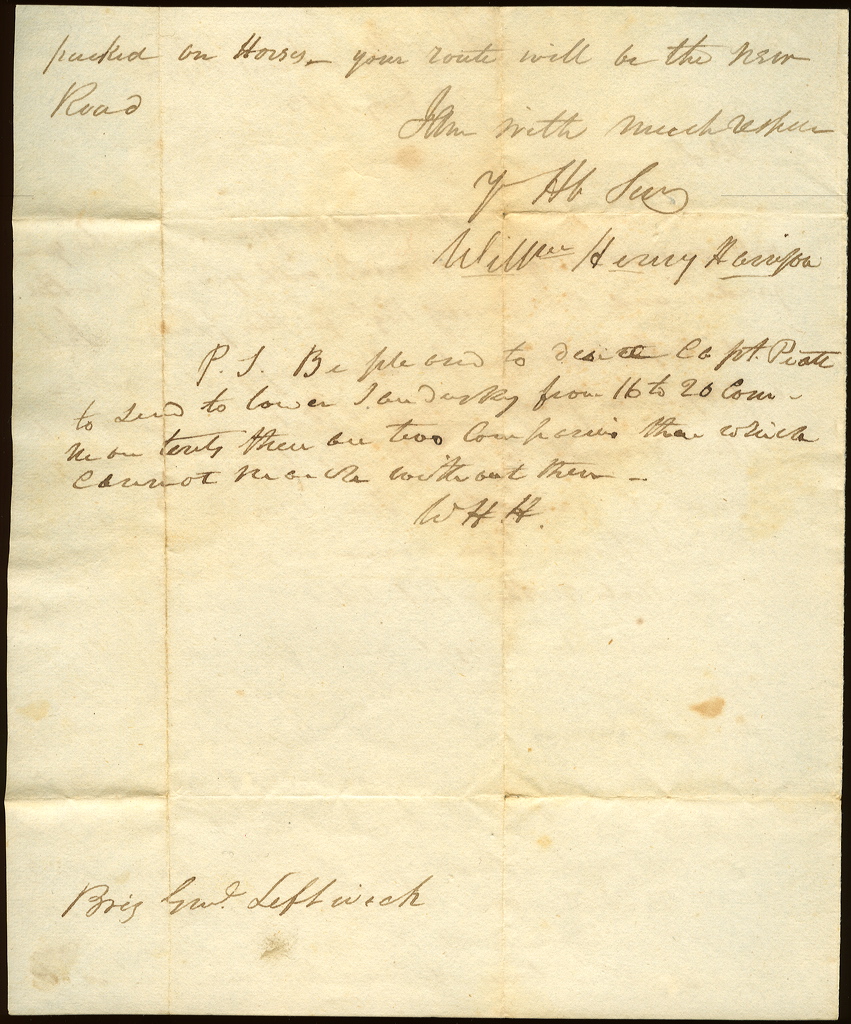 packed on Horses – your route will be the new
Road
I Am with much respect
yr Hb Serv
Willm Henry Harrison
P.S. Be pleased to desire Capt. Piatt
to send to lower Sandusky from 16 to 20 Com-
mon tents there are two Companies there which
cannot march without them –
W H H.
Brig Genl. Leftwich